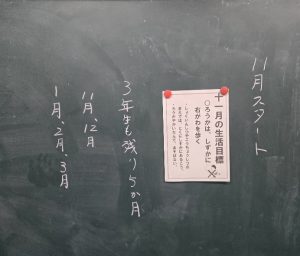 11月スタート
十一月の生活目標
○ろうかは、しずかに
右がわを歩く
3年生も残り5か月
11月、12月
1月、2月、3月